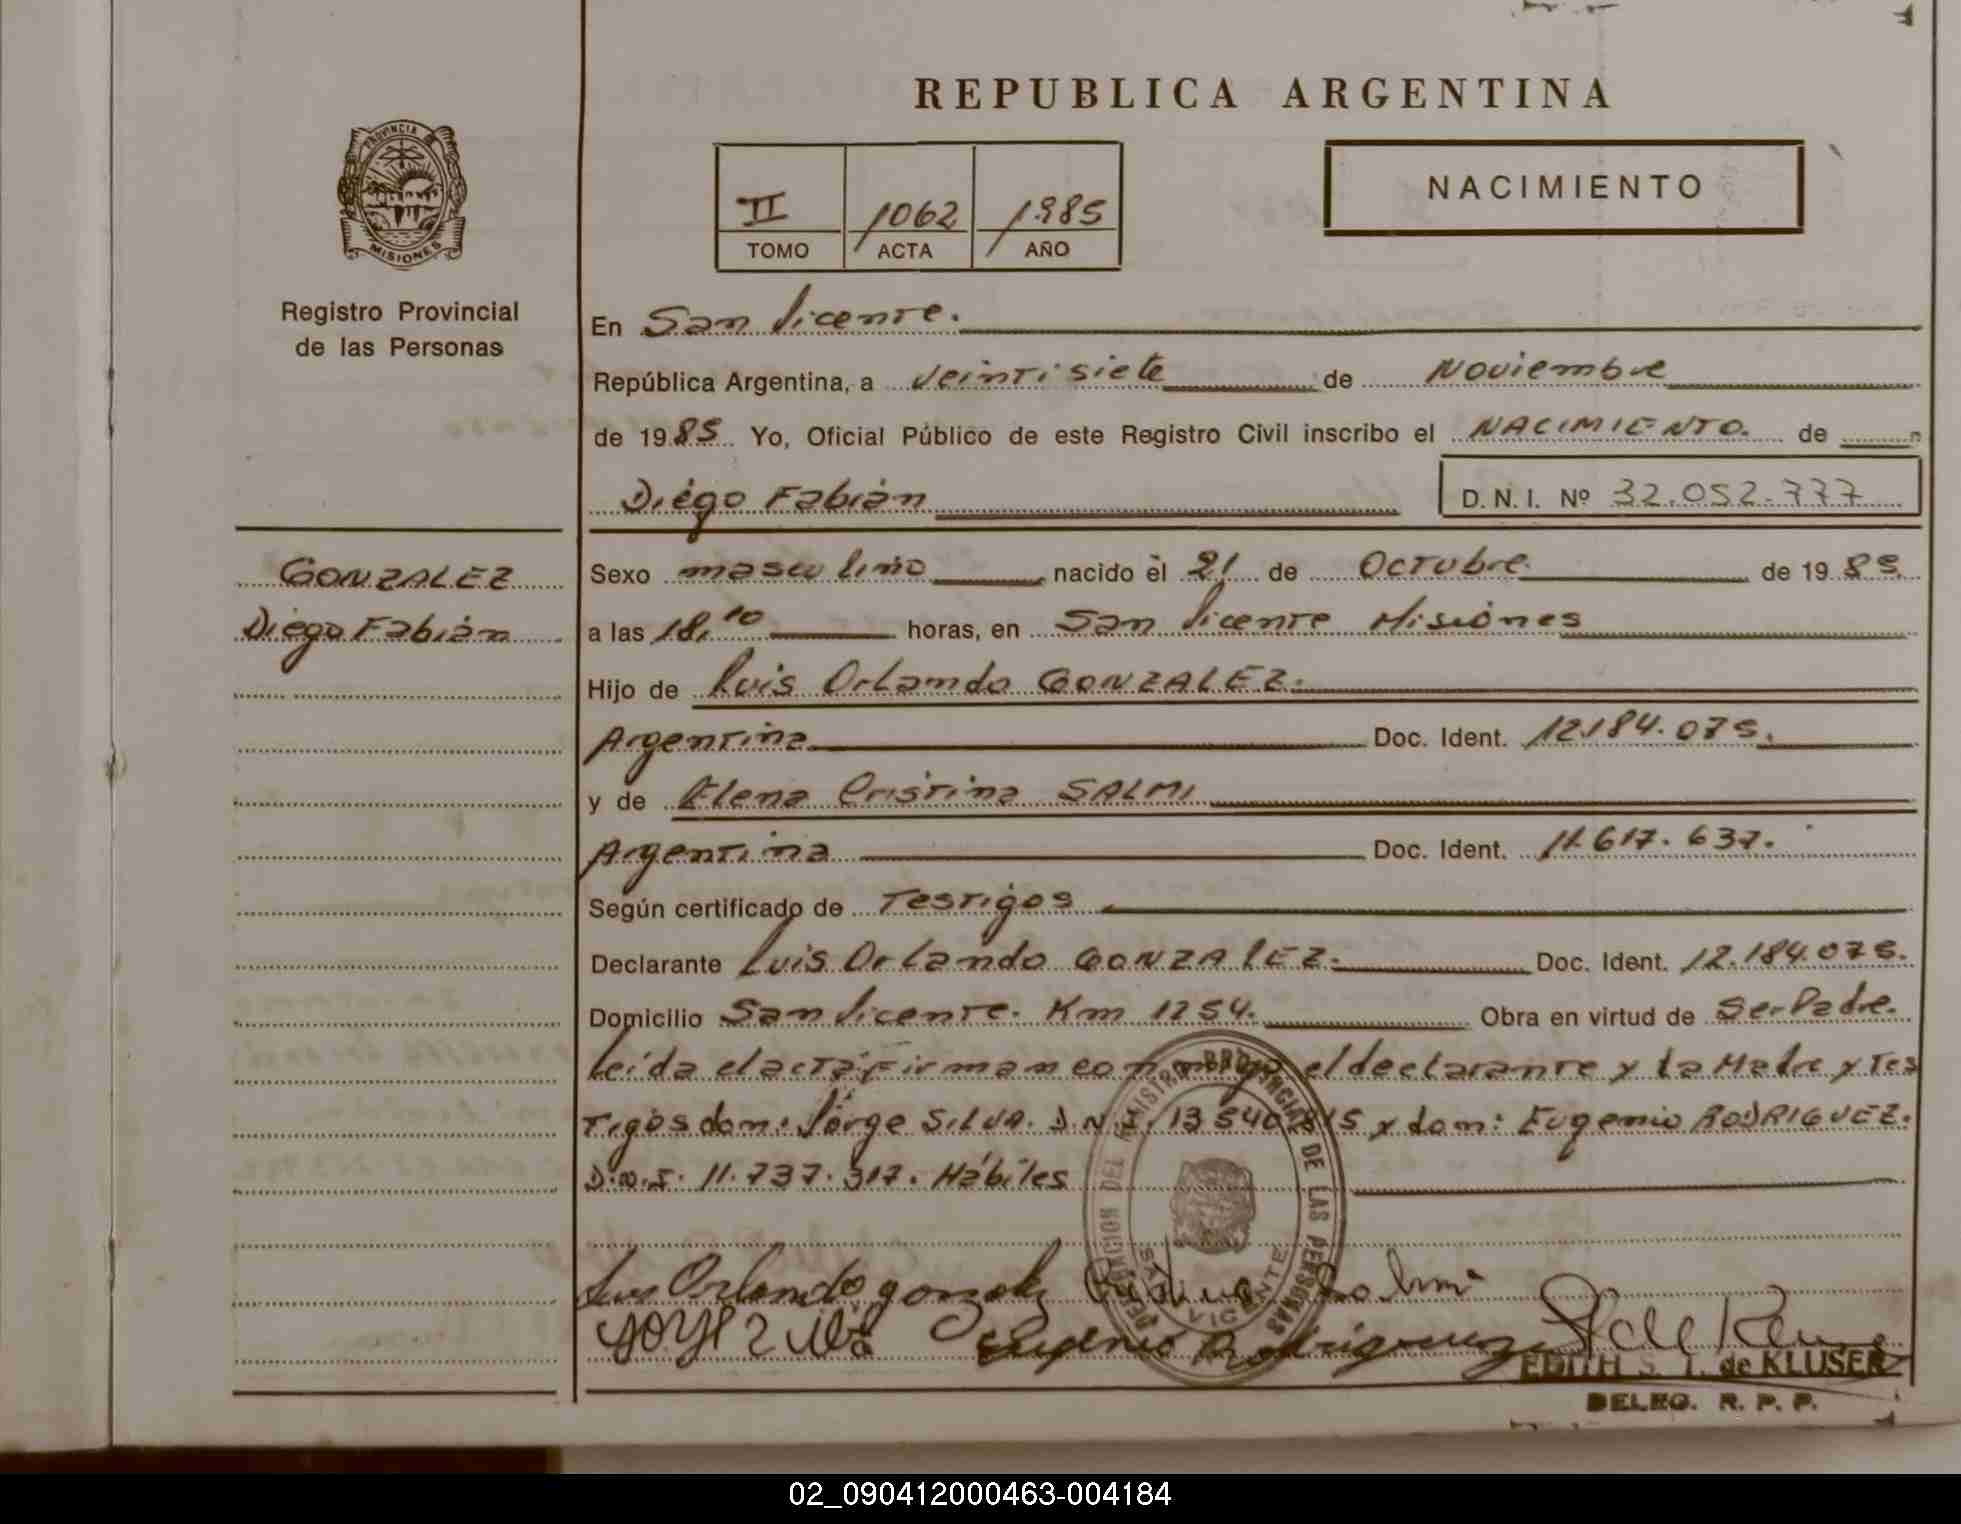 REPUBLICA ARGENTINA
PROVINCIA
MISIONES
Registro Provincial
de las Personas
II 1062 1985
TOMO ACTA AÑO
NACIMIENTO
En San Vicente.
República Argentina, a veintisiete de Noviembre
de 1985 Yo, Oficial Público de este Registro Civil inscribo el NACIMIENTO. de
Diego Fabián D.N.I. Nº 32.052.777
GONZALEZ
Diego Fabián
Sexo masculino nacido el 21 de Octubre de 1985
a las 18,10 horas, en San Vicente Misiones
Hijo de Luis Orlando GONZALEZ.
Argentina Doc. Ident. 12.184.075.
y de Elena Cristina SALMI
Argentina Doc. Ident. 11.617.637.
Según certificado de Testigos
Declarante Luis Orlando GONZALEZ. Doc. Ident. 12.184.075.
Domicilio San Vicente. Km 1254. Obra en virtud de Ser Padre.
Leída el acta firman conmigo el declarante y la Madre y Tes
tigos don: Jorge SILVA. D.N.I. 13540815 y don: Eugenio RODRIGUEZ.
D.N.I. 11.737.317. Hábiles
DELEGACION DEL REGISTRO PROVINCIAL DE LAS PERSONAS
SAN VICENTE
Luis Orlando gonzalez Cristina Salmi
Eugenio Rodriguez
EDITH S. T. de KLUSER
DELEG. R. P. P.
02_090412000463-004184